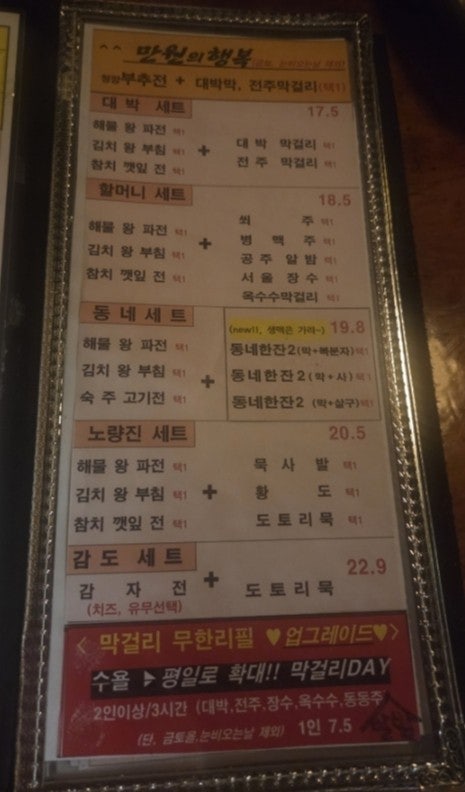 ^^ 만원의행복(금토, 눈비오는날 제외)
청양부추전 + 대박막, 전주막걸리(택1)
대 박 세트 17.5
해물 왕 파전 택1
김치 왕 부침 택1 + 대 박 막걸리 택1
참치 깻잎 전 택1 전 주 막걸리 택1
할머니 세트 18.5
쐬 주 택1
해물 왕 파전 택1 병 맥 주 택1
김치 왕 부침 택1 + 공 주 알 밤 택1
참치 깻잎 전 택1 서 울 장 수 택1
옥수수막걸리 택1
동네세트 (new!!, 생맥은 가라~) 19.8
해물 왕 파전 택1 동네한잔2(막+복분자)택1
김치 왕 부침 택1 + 동네한잔2(막+사)택1
숙 주 고기전 택1 동네한잔2 (막+살구)택1
노량진 세트 20.5
해물 왕 파전 택1 묵 사 발 택1
김치 왕 부침 택1 + 황 도 택1
참치 깻잎 전 택1 도 토 리 묵 택1
감도 세트 22.9
감 자 전 + 도 토 리 묵
(치즈, 유무선택)
< 막걸리 무한리필 ♥업그레이드♥>
수욜 ▶평일로 확대!! 막걸리DAY
2인이상/3시간 (대박,전주,장수,옥수수,동동주
(단, 금토욜,눈비오는날 제외) 1인 7.5